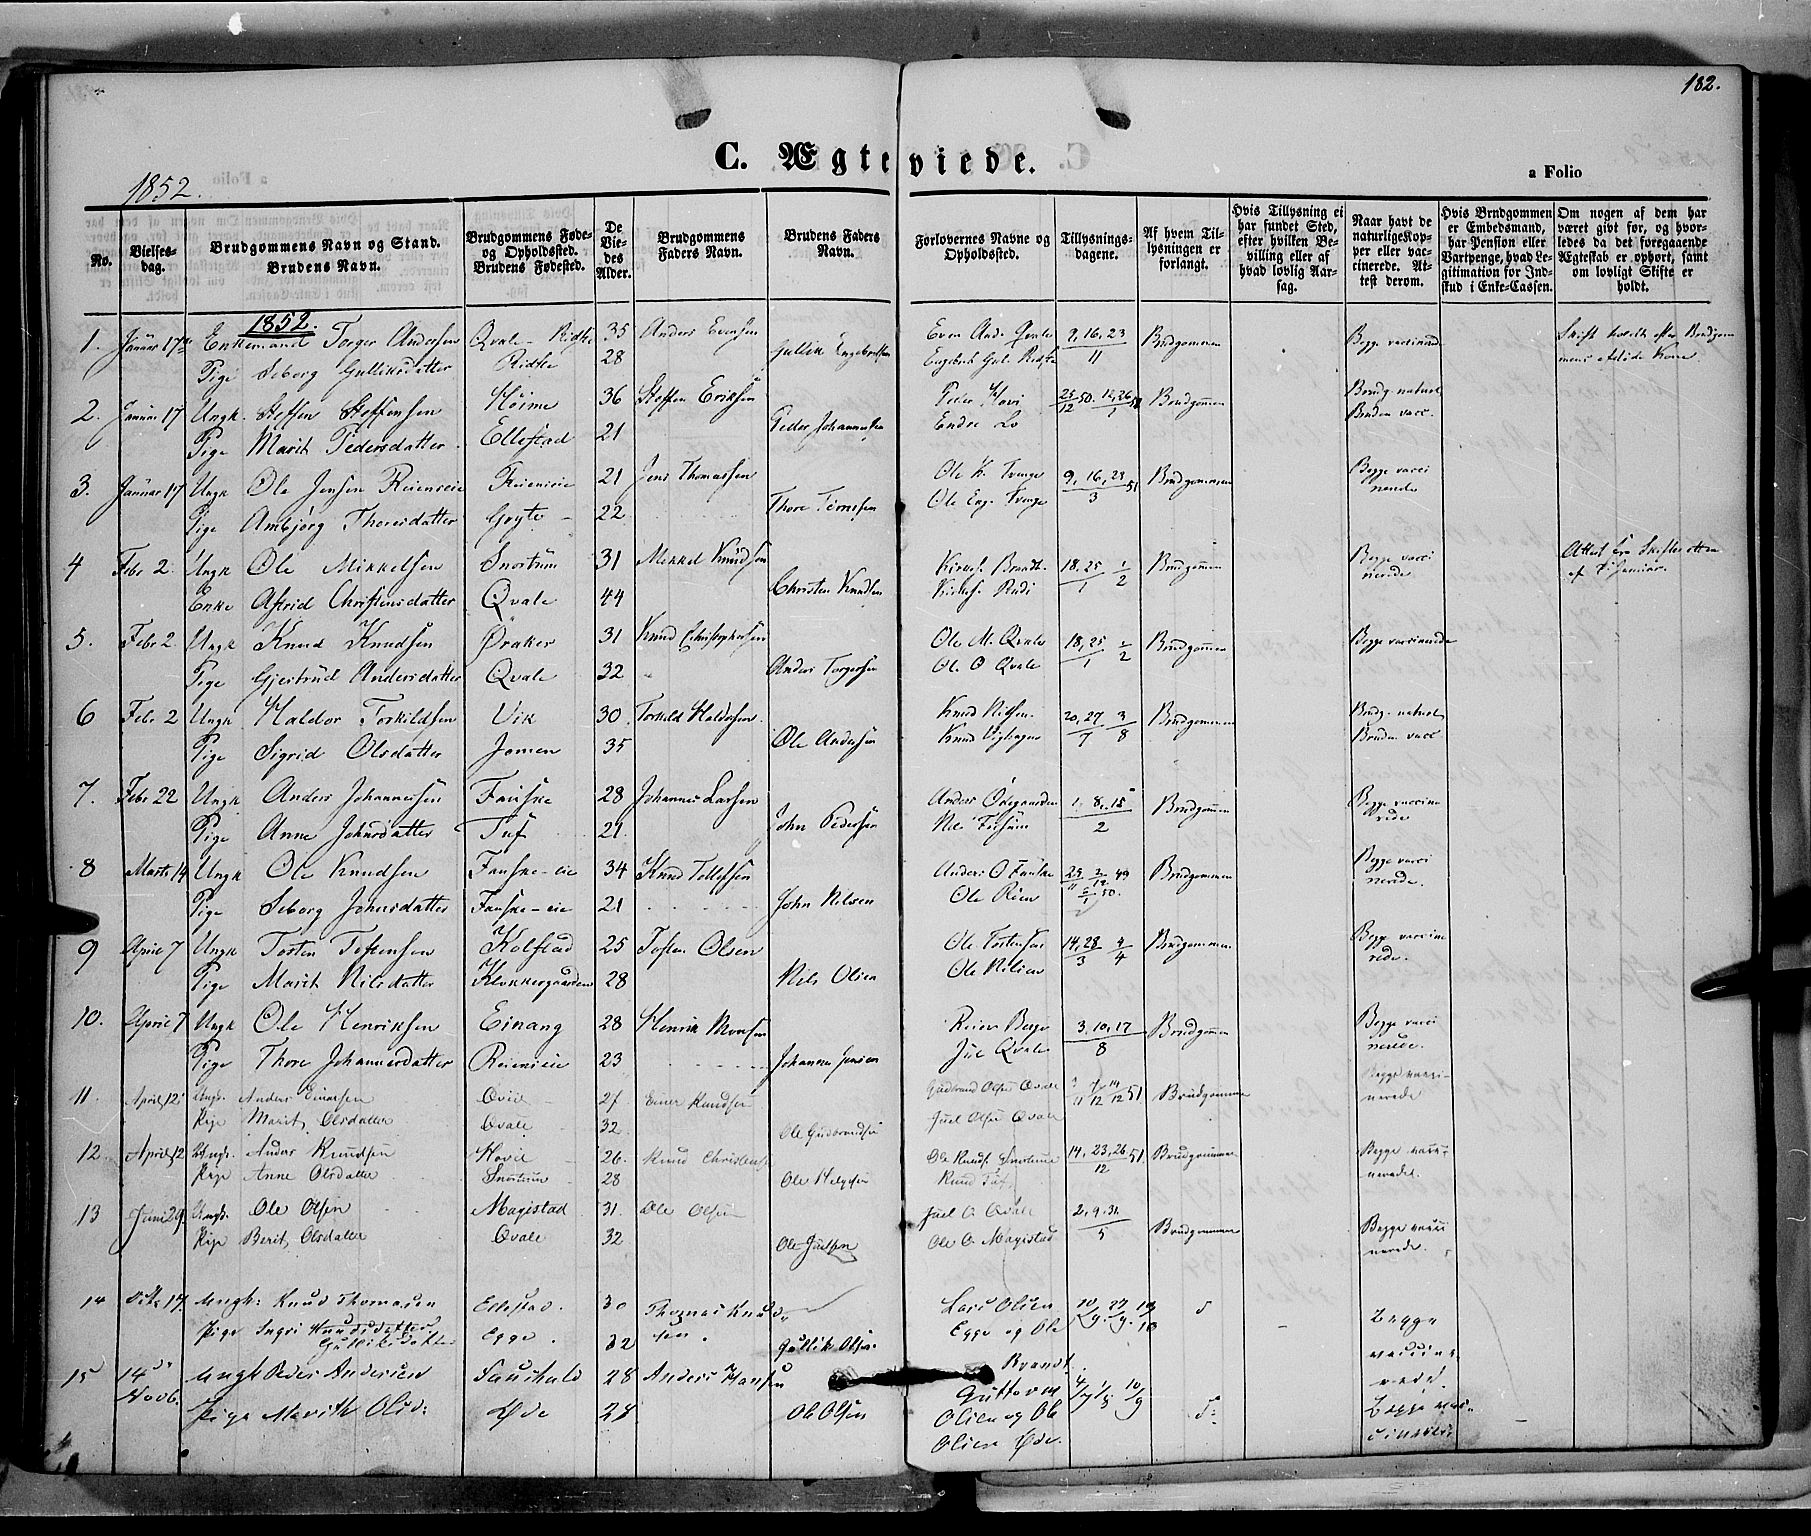 182.
C. Ægteviede.
a Folio
1852.
No.
Vielses-dag.
Brudgommens Navn og Stand. Brudens Navn.
Brudgommens Føde- og Opholdssted. Brudens Fødested.
De Viedes Alder.
Brudgommens Faders Navn.
Brudens Faders Navn.
Forlovernes Navne og Opholdssted.
Tillysnings-dagene.
Af hvem Tillysningen er forlangt.
Hvis Tillysning ei har fundet Sted, efter hvilken Bevilling eller af hvad lovlig Aarsag.
Naar havt de naturlige Kopper eller vaccinerede. Attest derom.
Hvis Brudgommen er Embedsmand, har Pension eller Vartpenge, hvad Legitimation for Indskud i Enke-Cassen.
Om nogen af dem har været givt før, og hvorledes da det foregaaende Ægteskab er ophørt, samt om lovligt Skifte er holdt.
1852.
1. Januar 17 Enkemand Torger Andersen Qvale Ridste 35 Anders Evensen Even And. Qvale 9, 16, 23 Brudgommen Begge vaccinered Skift holdt efter Brudgommens afdøde Kone
Pige Seborg Gulliksdatter Ridste 28 Gullik Engebretsen Engebret Gul. Ridste 11
2. Januar 17 Ungk. Steffen Steffensen Høime 36 Steffen Eriksen Peder Hovi 25/12 50. Brudgommen Brudg naturl
Pige Marit Pedersdatter Ellestad 21 Peder Johannesen Endre Lo Bruden vacc.
3. Januar 17 Ungk Ole Jensen Reieneie Reieneie 21 Jens Thomassen Ole K. Tvenge 9, 16, 23 51 Brudgommen Begge vacci
Pige Ambjørg Thoresdatter 22 Ole Eng. Tvenge 3 nerede
4 Febr 2. Ungk Ole Mikkelsen Snortum 31 Mikkel Knudsen 18, 25 1 Brudgommen Begge vacci Attest fra Skifteretten
Enke Astrid Christensdatter Qvale 44 Christen Knudsen 1 2 nerede af Januar.
5. Febr 2 Ungk Knud Knudsen Øraker 31 Knud Christophersen Ole M. Qvale 18, 25 1 Brudgommen Begge vaccinerede
Pige Gjertrud Andersdatter Qvale 32 Anders Torgersen Ole O Qvale 1 2
6 Febr 2 Ungk Haldor Torkildsen Vik 30 Torkild Haldorsen Knud Nilsen 20, 27 3 Brudgommen Brudg. naturl
Pige Sigrid Olsdatter Jomen 35 Ole Andersen Knud 7 8 Bruden vacc
7. Febr 22 Ungk Anders Johannesen Fauske 28 Johannes Larsen Anders Ødegaarden 1, 8, 15 Brudgommen Begge vaccine
Pige Anne Johnsdatter Tuf 21 John Pedersen Nils 2 rede
8 Marts 14 Ungk Ole Knudsen Fauske-eie 34 Knud Tollefsen Anders O Fauske Brudgommen Begge vacci
Pige Seborg Johnsdatter Fauske-eie 21 John Nilsen Ole Reien nerede.
9 April 7 Ungk Tosten Tostensen Kolstad 25 Tosten Olsen Ole Tostensen 14, 28 4 Brudgommen Begge vaccine
Pige Marit Nilsdatter Klokkergaarden 28 Nils Olsen Ole Nilsen 3 4 rede.
10. April 7 Ungk Ole Henriksen Einang 28 Henrik Monsen Reier Berge 3, 10, 17 Brudgommen Begge vacci
Pige Thore Johannesdatter Reieneie 23 Johannes Jensen Jul Qvale 8 nerede.
11. April 12 Ungk. Anders Einersen Øvrie 27 Einer Knudsen Gudbrand Olsen Qvale 51 Brudgommen Begge vacci-
Pige Marit Olsdatter Qvale 32 Ole Gudbrandsen Juel Olsen Qvale nerede
12 April 12 Ungk. Anders Knudsen Hovie 26. Knud Christensen Ole Knuds. Snortum 14, 23, 26 51 Brudgommen Begge vacci-
Pige Anne Olsdatter Snortum 28 Ole Helgesen Knud Tuf. 12 nerede.
13 Juni 29 Ungk. Ole Olsen Magistad 31. Ole Olsen Juel O. Qvale 2, 9. 31 Brudgommen Begge vacci
Pige Berit Olsdatter Qvale 32 Ole Juelsen Ole O. Magistad 5 nerede.
14 Octr 17 Ungk: Knud Thomasen Ellestad. 30 Thomas Knud- Lars Olsen Begge
Pige Ingri Knudsdatter Gulliksdatter Egge. 32 sen. Gullik Olsen. Egge og Ole Brandt vaccinerede.
15 14 Novb. Ungk Peder Andersen 28 Anders Hansen Guttorm Begge vac-
Pige Marith Olsd: Øde 28 Ole Olsen Olsen og Ole Olsen Øde.